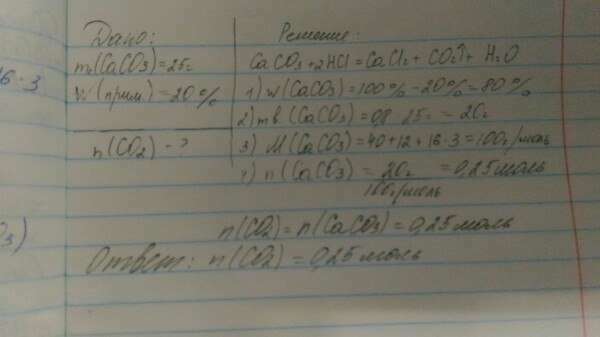 16·3
Дано:
m(CaCO3)=25г
w(прим.)=20%
n(CO2) - ?
Решение:
CaCO3+2HCl=CaCl2+CO2↑+H2O
1) w(CaCO3)=100%-20%=80%
2) m в (CaCO3)=0,8·25г=20г
3) M(CaCO3)=40+12+16·3=100г/моль
4) n(CaCO3)=20г/100г/моль=0,25моль
n(CO2)=n(CaCO3)=0,25моль
O3)
Ответ: n(CO2)=0,25моль